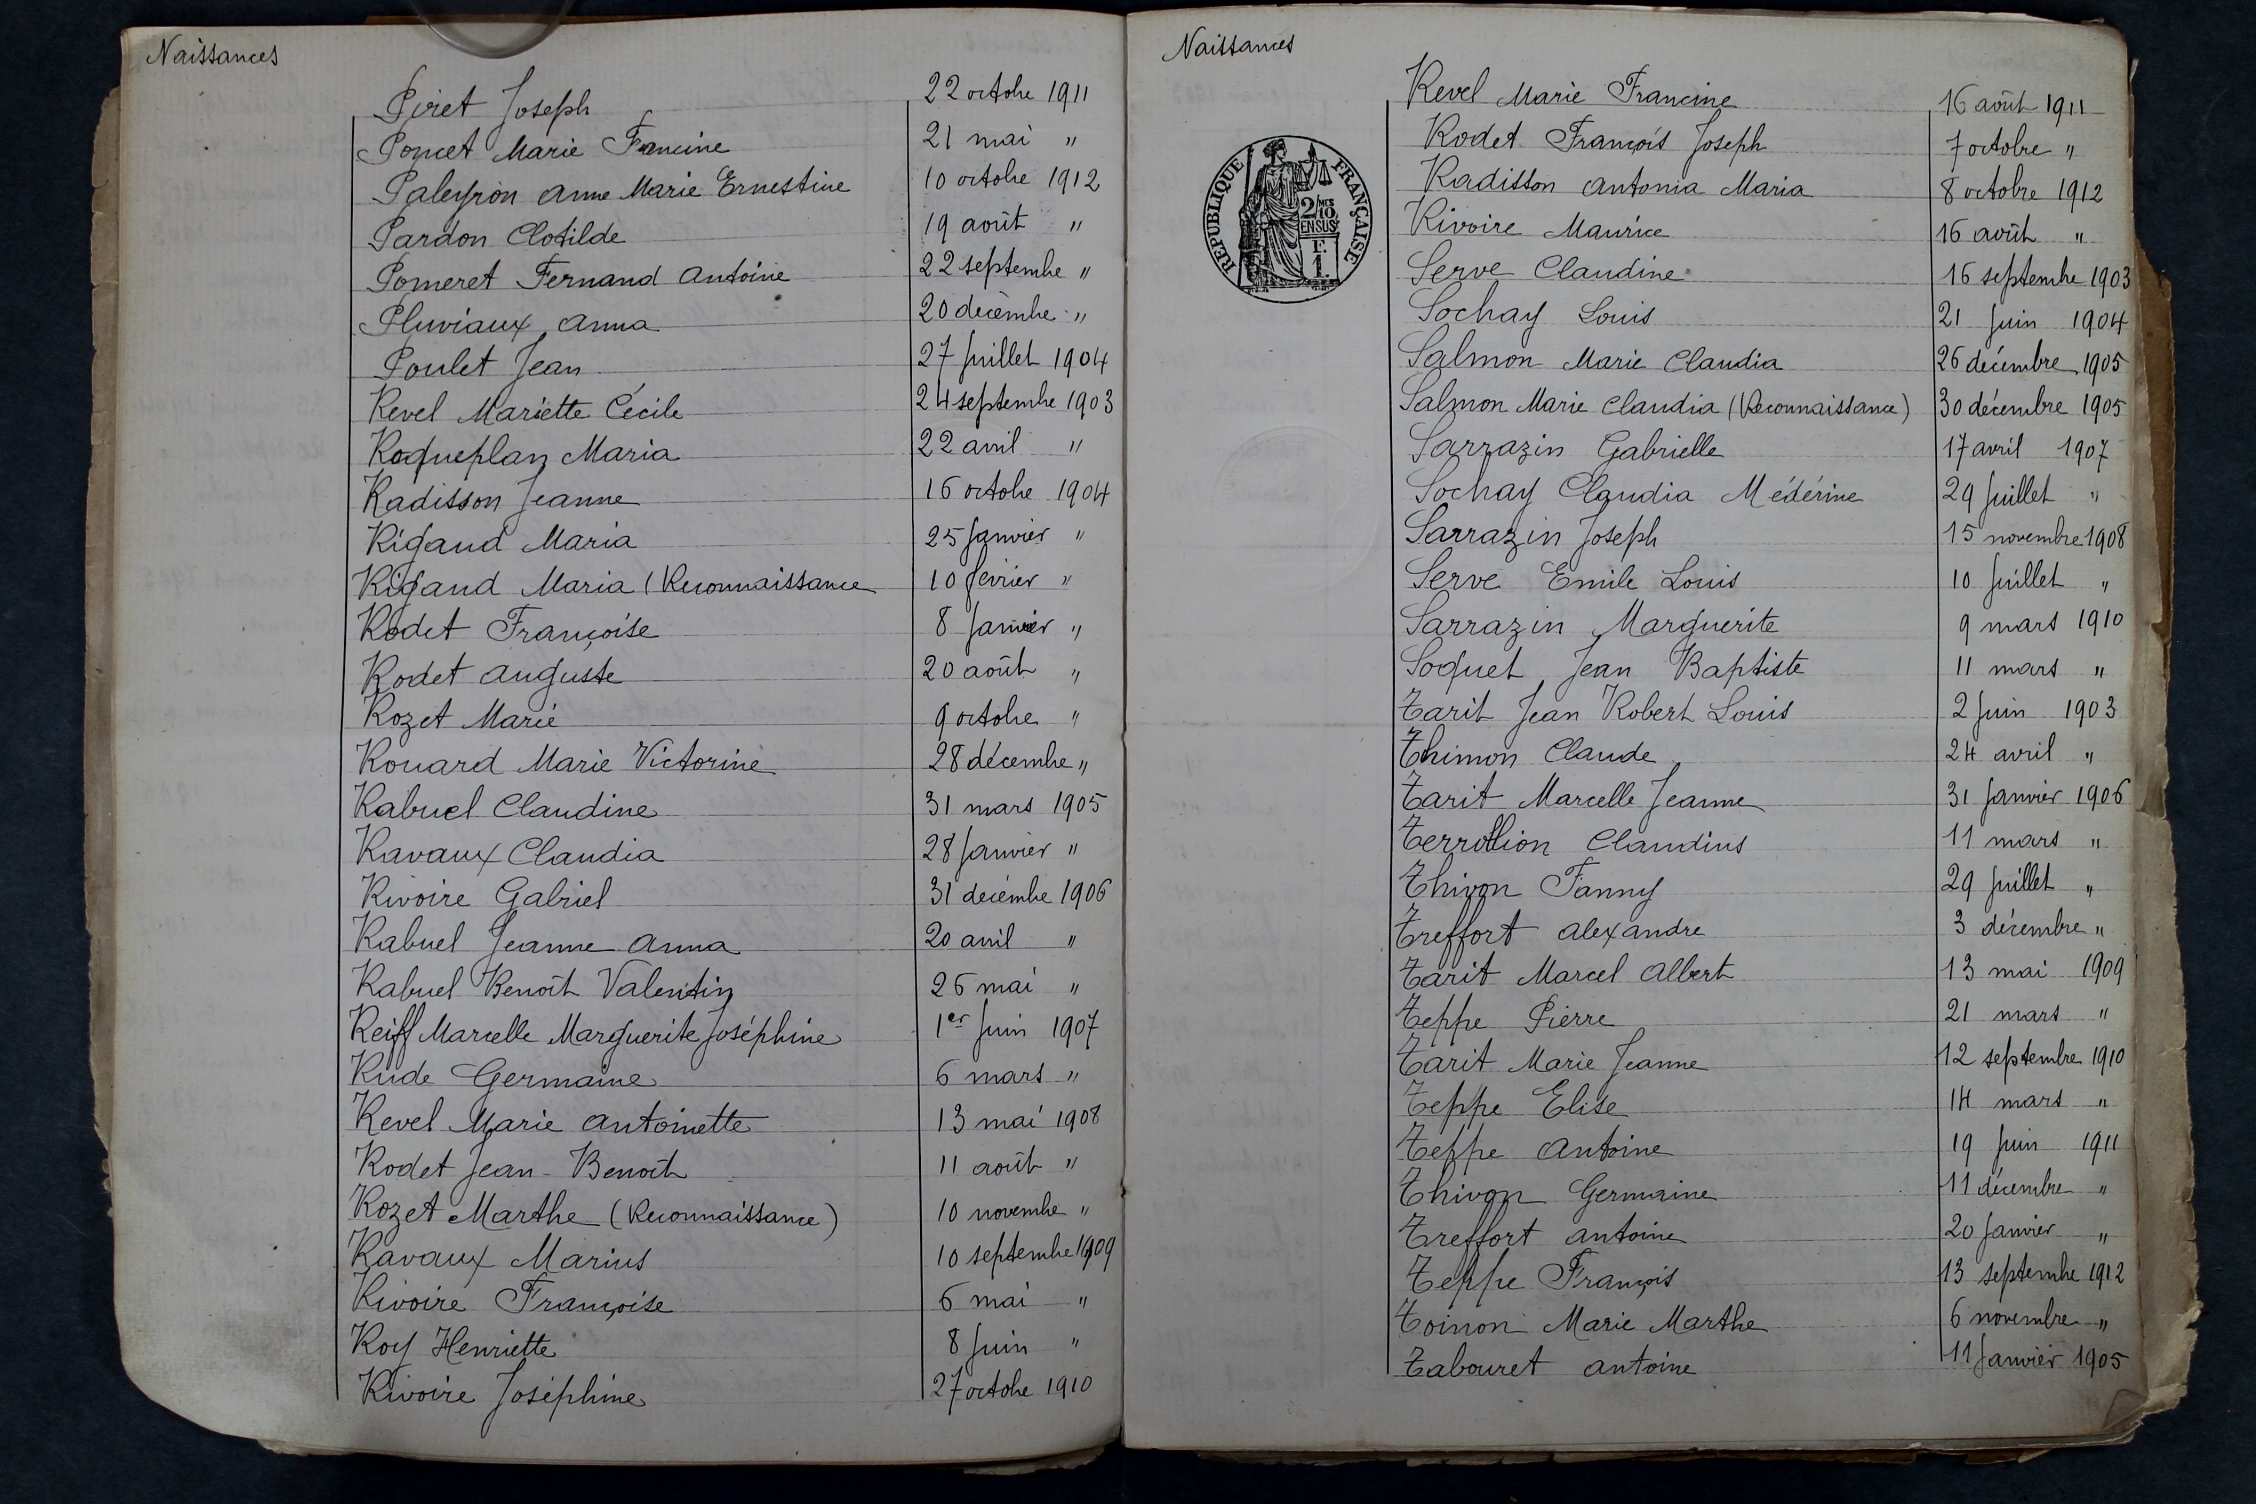 Naissances
Piret Joseph 22 octobre 1911
Poncet Marie Francine 21 mai "
Paleyron Anne Marie Ernestine 10 octobre 1912
Pardon Clotilde 19 août "
Pomeret Fernand Antoine 22 septembre "
Pluviaux Anna 20 décembre "
Poulet Jean 27 Juillet 1904
Revel Mariette Cécile 24 septembre 1903
Roqueplan Maria 22 avril "
Radisson Jeanne 16 octobre 1904
Rigaud Maria 25 Janvier "
Rigaud Maria (Reconnaissance 10 février "
Rodet Françoise 8 Janvier "
Rodet Auguste 20 août "
Rozet Marie 9 octobre "
Rouard Marie Victorine 28 décembre "
Rabuel Claudine 31 mars 1905
Ravaux Claudia 28 Janvier "
Rivoire Gabriel 31 décembre 1906
Rabuel Jeanne Anna 20 avril "
Rabuel Benoît Valentin 26 mai "
Reiff Marcelle Marguerite Joséphine 1er Juin 1907
Rude Germaine 6 mars "
Revel Marie Antoinette 13 mai 1908
Rodet Jean-Benoît 11 août "
Rozet Marthe (Reconnaissance) 10 novembre "
Ravaux Marius 10 septembre 1909
Rivoire Françoise 6 mai "
Roy Henriette 8 Juin "
Rivoire Joséphine 27 octobre 1910
Naissances
REPUBLIQUE FRANÇAISE
2/10 MES
EN SUS
F.
1.
Revel Marie Francine 16 août 1911
Rodet François Joseph 7 octobre "
Radisson Antonia Maria 8 octobre 1912
Rivoire Maurice 16 août "
Serve Claudine 16 septembre 1903
Sochay Louis 21 Juin 1904
Salmon Marie Claudia 26 décembre 1905
Salmon Marie Claudia (Reconnaissance) 30 décembre 1905
Sarrazin Gabrielle 17 avril 1907
Sochay Claudia Médérine 29 Juillet "
Sarrazin Joseph 15 novembre 1908
Serve Emile Louis 10 Juillet "
Sarrazin Marguerite 9 mars 1910
Soquet Jean Baptiste 11 mars "
Tarit Jean Robert Louis 2 Juin 1903
Thimon Claude 24 avril "
Tarit Marcelle Jeanne 31 Janvier 1906
Terrollion Claudius 11 mars "
Thivon Fanny 29 Juillet "
Treffort Alexandre 3 décembre "
Tarit Marcel Albert 13 mai 1909
Teppe Pierre 21 mars "
Tarit Marie Jeanne 12 septembre 1910
Teppe Elise 14 mars "
Teppe Antoine 19 Juin 1911
Thivon Germaine 11 décembre "
Treffort Antoine 20 Janvier "
Teppe François 13 septembre 1912
Toinon Marie Marthe 6 novembre "
Tabouret Antoine 11 Janvier 1905